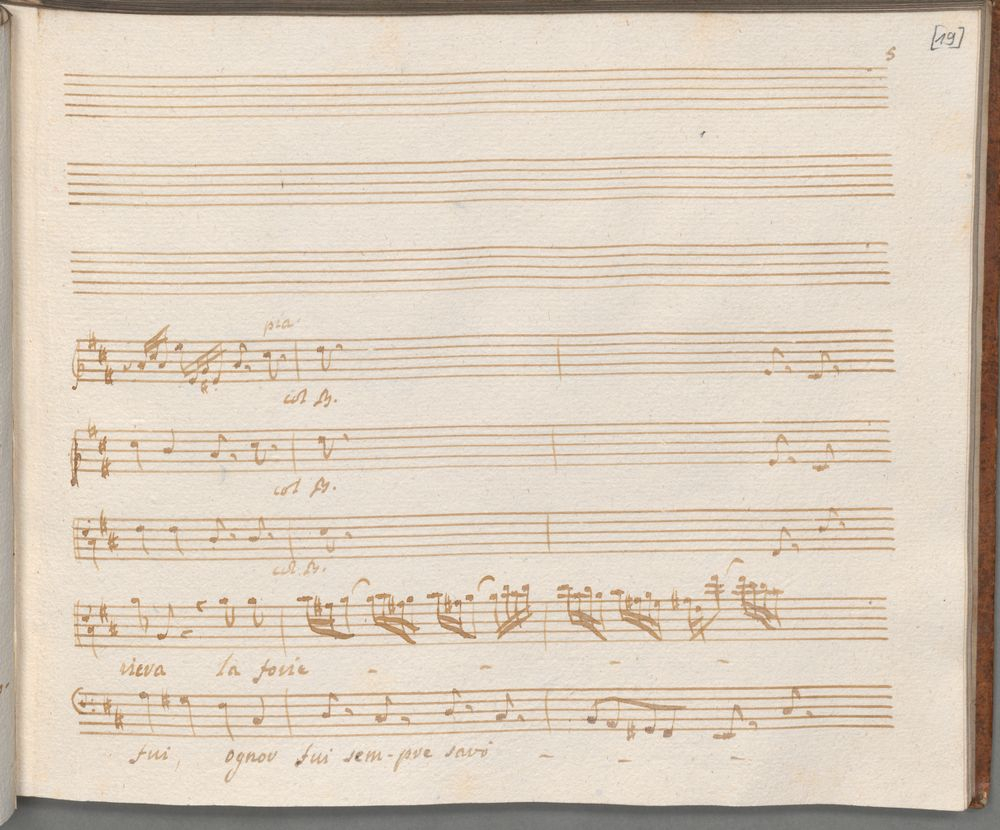 [19]
5
pia
col B.
col B.
col B.
riera la forie - - - -
fui, ognor fui sem-pre sarò - - -